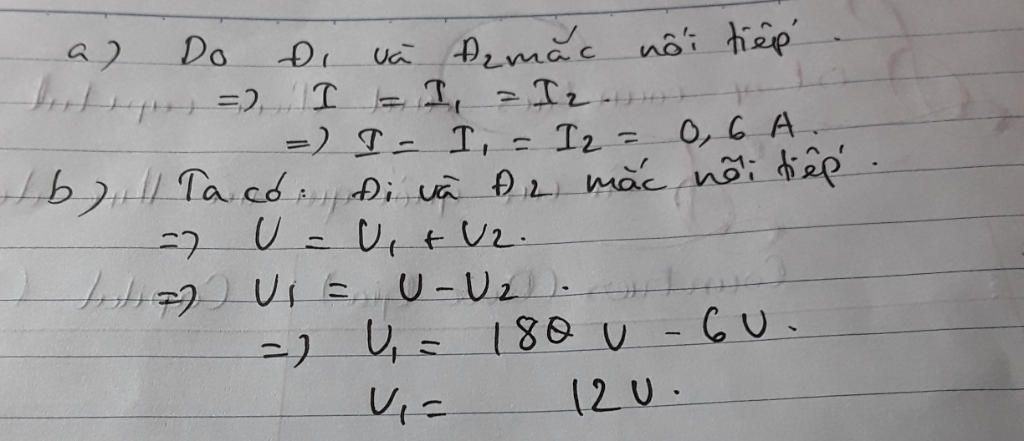 a) Do Đ₁ và Đ₂ mắc nối tiếp.
=> I = I₁ = I₂.
=> I = I₁ = I₂ = 0,6 A.
b) Ta có: Đ₁ và Đ₂ mắc nối tiếp.
=> U = U₁ + U₂.
=> U₁ = U - U₂.
=> U₁ = 18 U - 6 U.
U₁ = 12 U.